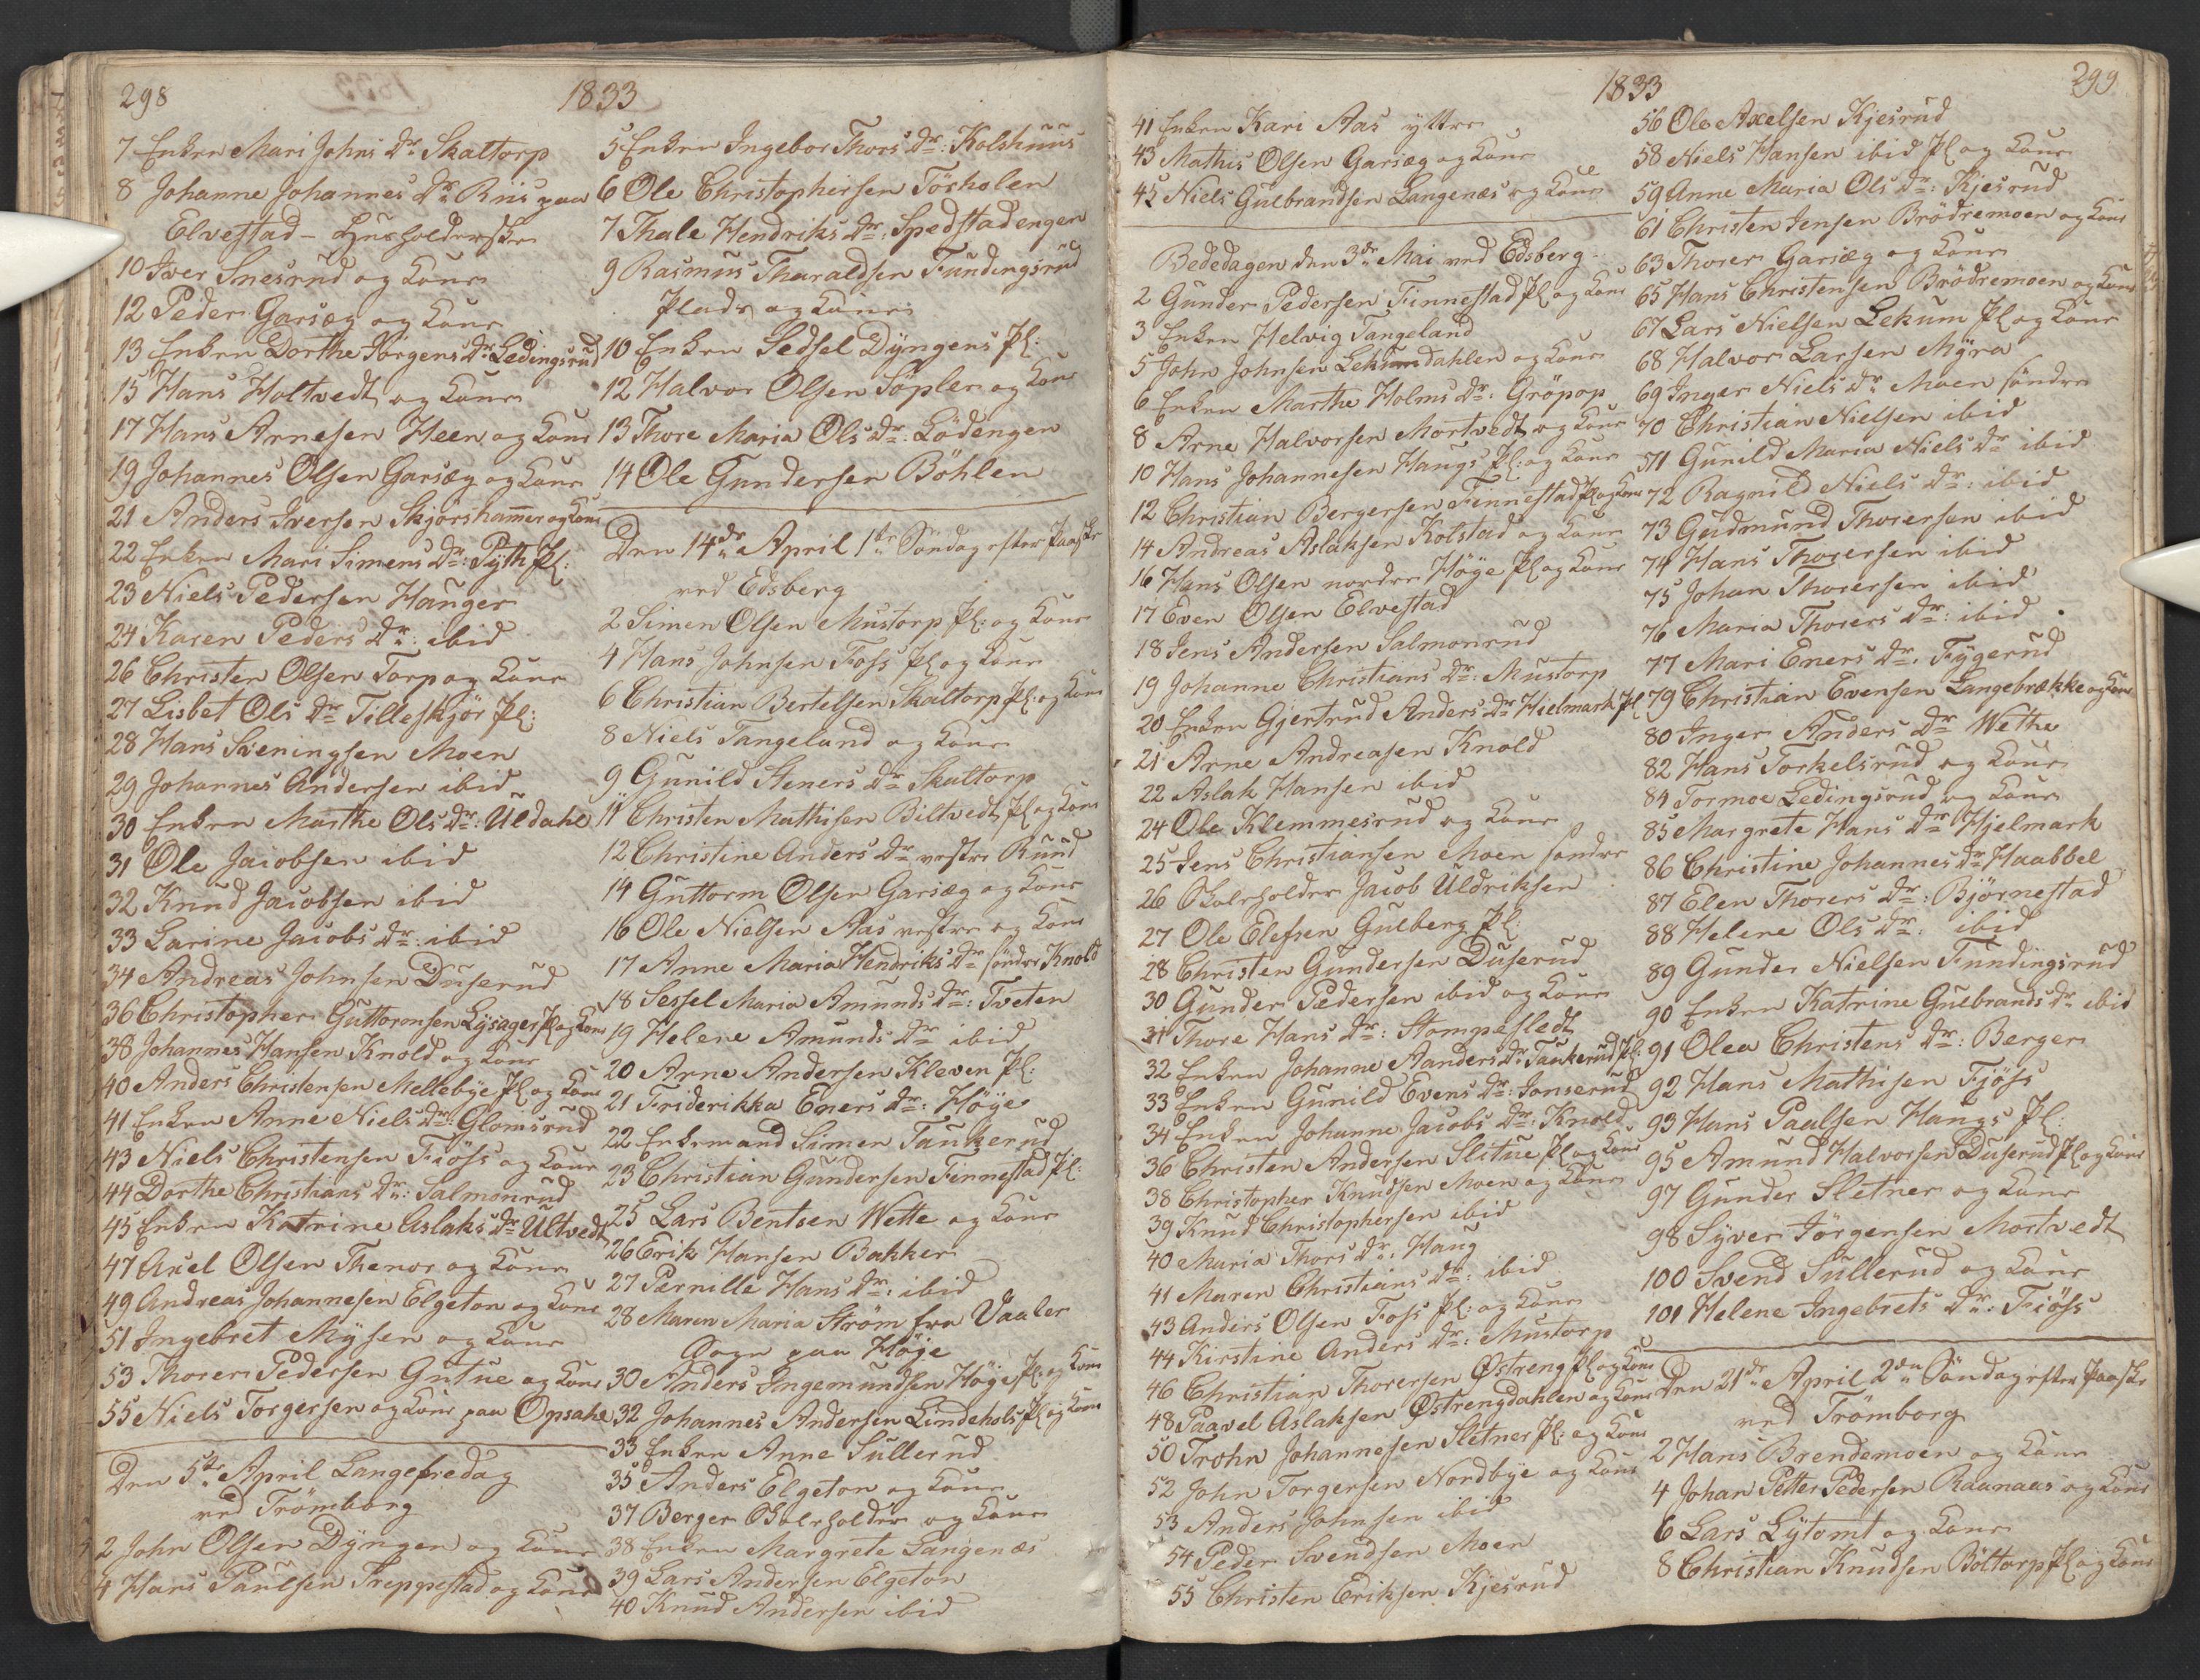 298
1833
7 Enken Mari Johns Dr. Skaltorp
8 Johanne Johannes Dr. Riis paa
Elvestad - Husholderske
10 Iver Snesrud og Kone
12 Peder Garsæg og Kone
13 Enken Dorthe Jörgens Dr. Ledingsrud
15 Hans Holtvedt og Kone
17 Hans Arnesen Heen og Kone
19 Johannes Olsen Garsæg og Kone
21 Anders Iversen Skjörshammer og Kone
22 Enken Mari Simens Dr: Pyth Pl:
23 Niels Pedersen Hauger
24 Karen Peders Dr: ibid
26 Christen Olsen Torp og Kone
27 Lisbet Ols Dr Tilleskjör Pl:
28 Hans Sveningsen Moen
29 Johannes Andersen ibid
30 Enken Marthe Ols Dr: Uldahl
31 Ole Jacobsen ibid
32 Knud Jacobsen ibid
33 Larine Jacobs Dr: ibid
34 Andreas Johnsen Duserud
36 Christopher Guttormsen Lysager Pl og Kone
38 Johannes Hansen Knold og Kone
40 Anders Christensen Mellebye Pl og Kone
41 Enken Anne Niels Dr: Glomsrud
43 Niels Christensen Fiöss og Kone
44 Dorthe Christians Dr: Salmonrud
45 Enken Katrine Aslaks Dr Ultvedt
47 Axel Olsen Thenor og Kone
49 Andreas Johannesen Elgeton og Kone
51 Ingebret Mysen og Kone
53 Thorer Pedersen Gutue og Kone
55 Niels Torgersen og Kone paa Opsahl
Den 5te April Langefredag
ved Trömborg
2 John Olsen Dyngen og Kone
4 Hans Paulsen Treppestad og Kone
5 Enken Ingebor Thors Dr: Kolshuus
6 Ole Christophersen Tösholen
7 Thale Hendriks Dr: Spedstadengen
9 Rasmus Tharaldsen Fundingsrud
Plads og Kone
10 Enken Sedsel Dyngens Pl:
12 Halvor Olsen Söpler og Kone
13 Thore Maria Ols Dr: Lödengen
14 Ole Gundersen Böhlen
Den 14de April 1ste Söndag efter Paaske
ved Edsberg
2 Simen Olsen Mustorp Pl: og Kone
4 Hans Johnsen Foss Pl og Kone
6 Christian Bertelsen Skaltorp Pl: og Kone
8 Niels Tangeland og Kone
9 Gunild Steners Dr Skaltorp
11 Christen Mathisen Biltvedt Pl og Kone
12 Christine Anders Dr vestre Ruud
14 Guttorm Olsen Garsæg og Kone
16 Ole Nielsen Aas vestre og Kone
17 Anne Maria Hendriks Dr söndre Knold
18 Sessel Maria Amunds Dr: Tveten
19 Helene Amunds Dr ibid
20 Arne Andersen Kleven Pl:
21 Friderikka Eners Dr: Höye
22 Enkemand Simen Taukerud
23 Christian Gundersen Finnestad Pl:
25 Lars Bentsen Wette og Kone
26 Erik Hansen Bakker
27 Pernille Hans Dr: ibid
28 Maren Maria Ström fra Vaaler
Sogn paa Höje
30 Anders Ingemundsen Höge Pl: og Kone
32 Johannes Andersen Lindehols Pl og Kone
33 Enken Anne Sullerud
35 Anders Elgeton og Kone
37 Berger Skoleholder og Kone
38 Enken Margrete Langenæs
39 Lars Andersen Elgeton
40 Knud Andersen ibid
1833
299
41 Enken Kari Aas yttre
43 Mathis Olsen Garsæg og Kone
45 Niels Gulbrandsen Langenæs og Kone
Bededagen den 3de Mai ved Edsberg
2 Gunder Pedersen Finnestad Pl og Kone
3 Enken Helvig Tangeland
5 John Johnsen Lekumdahlen og Kone
6 Enken Marthe Holms Dr: Gröpop
8 Arne Halvorsen Mortvedt og Kone
10 Hans Johannesen Haugs Pl: og Kone
12 Christian Bergersen Finnestad Pl og Kone
14 Andreas Aslaksen Kolstad og Kone
16 Hans Olsen nordre Höge Pl og Kone
17 Even Olsen Elvestad
18 Jens Andersen Salmonrud
19 Johanne Christians Dr: Mustorp
20 Enken Gjertrud Anders Dr Hielmark Pl
21 Arne Andreasen Knold
22 Aslak Hansen ibid
24 Ole Klemmesrud og Kone
25 Jens Christiansen Moen söndre
26 Skoleholder Jacob Uldriksen
27 Ole Elefsen Gulberg Pl:
28 Christen Gundersen Duserud
30 Gunder Pedersen ibid og Kone
31 Thore Hans Dr: Stompesledt
32 Enken Johanne Aanders Dr Taukerud Pl:
33 Enken Gunild Evens Dr: Jonserud
34 Enken Johanne Jacobs Dr: Knold
36 Christen Andersen Slitue Pl og Kone
38 Christopher Knudsen Moen og Kone
39 Knud Christophersen ibid
40 Maria Thors Dr: Haug
41 Maren Christians Dr: ibid
43 Anders Olsen Foss Pl: og Kone
44 Kirstine Anders Dr: Mustorp
46 Christian Thorersen Østreng Pl og Kone
48 Paavel Aslaksen Østrengdahlen og Kone
50 Trohn Johannesen Sletner Pl: og Kone
52 John Torgersen Nordbye og Kone
53 Anders Johnsen ibid
54 Peder Svendsen Moen
55 Christen Eriksen Kjesrud
56 Ole Axelsen Kjesrud
58 Niels Hansen ibid Pl og Kone
59 Anne Maria Ols Dr: Kjesrud
61 Christen Jensen Brödremoen og Kone
63 Thorer Garsæg og Kone
65 Hans Christensen Brödremoen og Kone
67 Lars Nielsen Lekum Pl og Kone
68 Halvor Larsen Myra
69 Inger Niels Dr Moen söndre
70 Christian Nielsen ibid
71 Gunild Maria Niels Dr ibid
72 Ragnild Niels Dr: ibid
73 Gudmund Thorersen ibid
74 Hans Thorersen ibid
75 Johan Thorersen ibid
76 Maria Thorers Dr: ibid
77 Mari Eners Dr: Fygerud
79 Christian Evensen Langebrække og Kone
80 Inger Anders Dr Wethe
82 Hans Torkelsrud og Kone
84 Tormoe Ledingsrud og Kone
85 Margrete Hans Dr Hjelmark
86 Christine Johannes Dr Haabbel
87 Elen Thorers Dr: Björnestad
88 Helene Ols Dr: ibid
89 Gunder Nielsen Fundingsrud
90 Enken Katrine Gulbrands Dr ibid
91 Olea Christens Dr: Berger
92 Hans Mathisen Fjöss
93 Hans Paalsen Haugs Pl:
95 Amund Halvorsen Duserud Pl og Kone
97 Gunder Sletner og Kone
98 Syver Jörgensen Mortvedt
100 Svend Sullerud og Kone
101 Helene Ingebrets Dr: Fiöss
Den 21de April 2den Söndag efter Paaske
ved Trömborg
2 Hans Brendemoen og Kone
4 Johan Petter Pedersen Raanaas og Kone
6 Lars Lytomt og Kone
8 Christian Knudsen Böltorp Pl og Kone